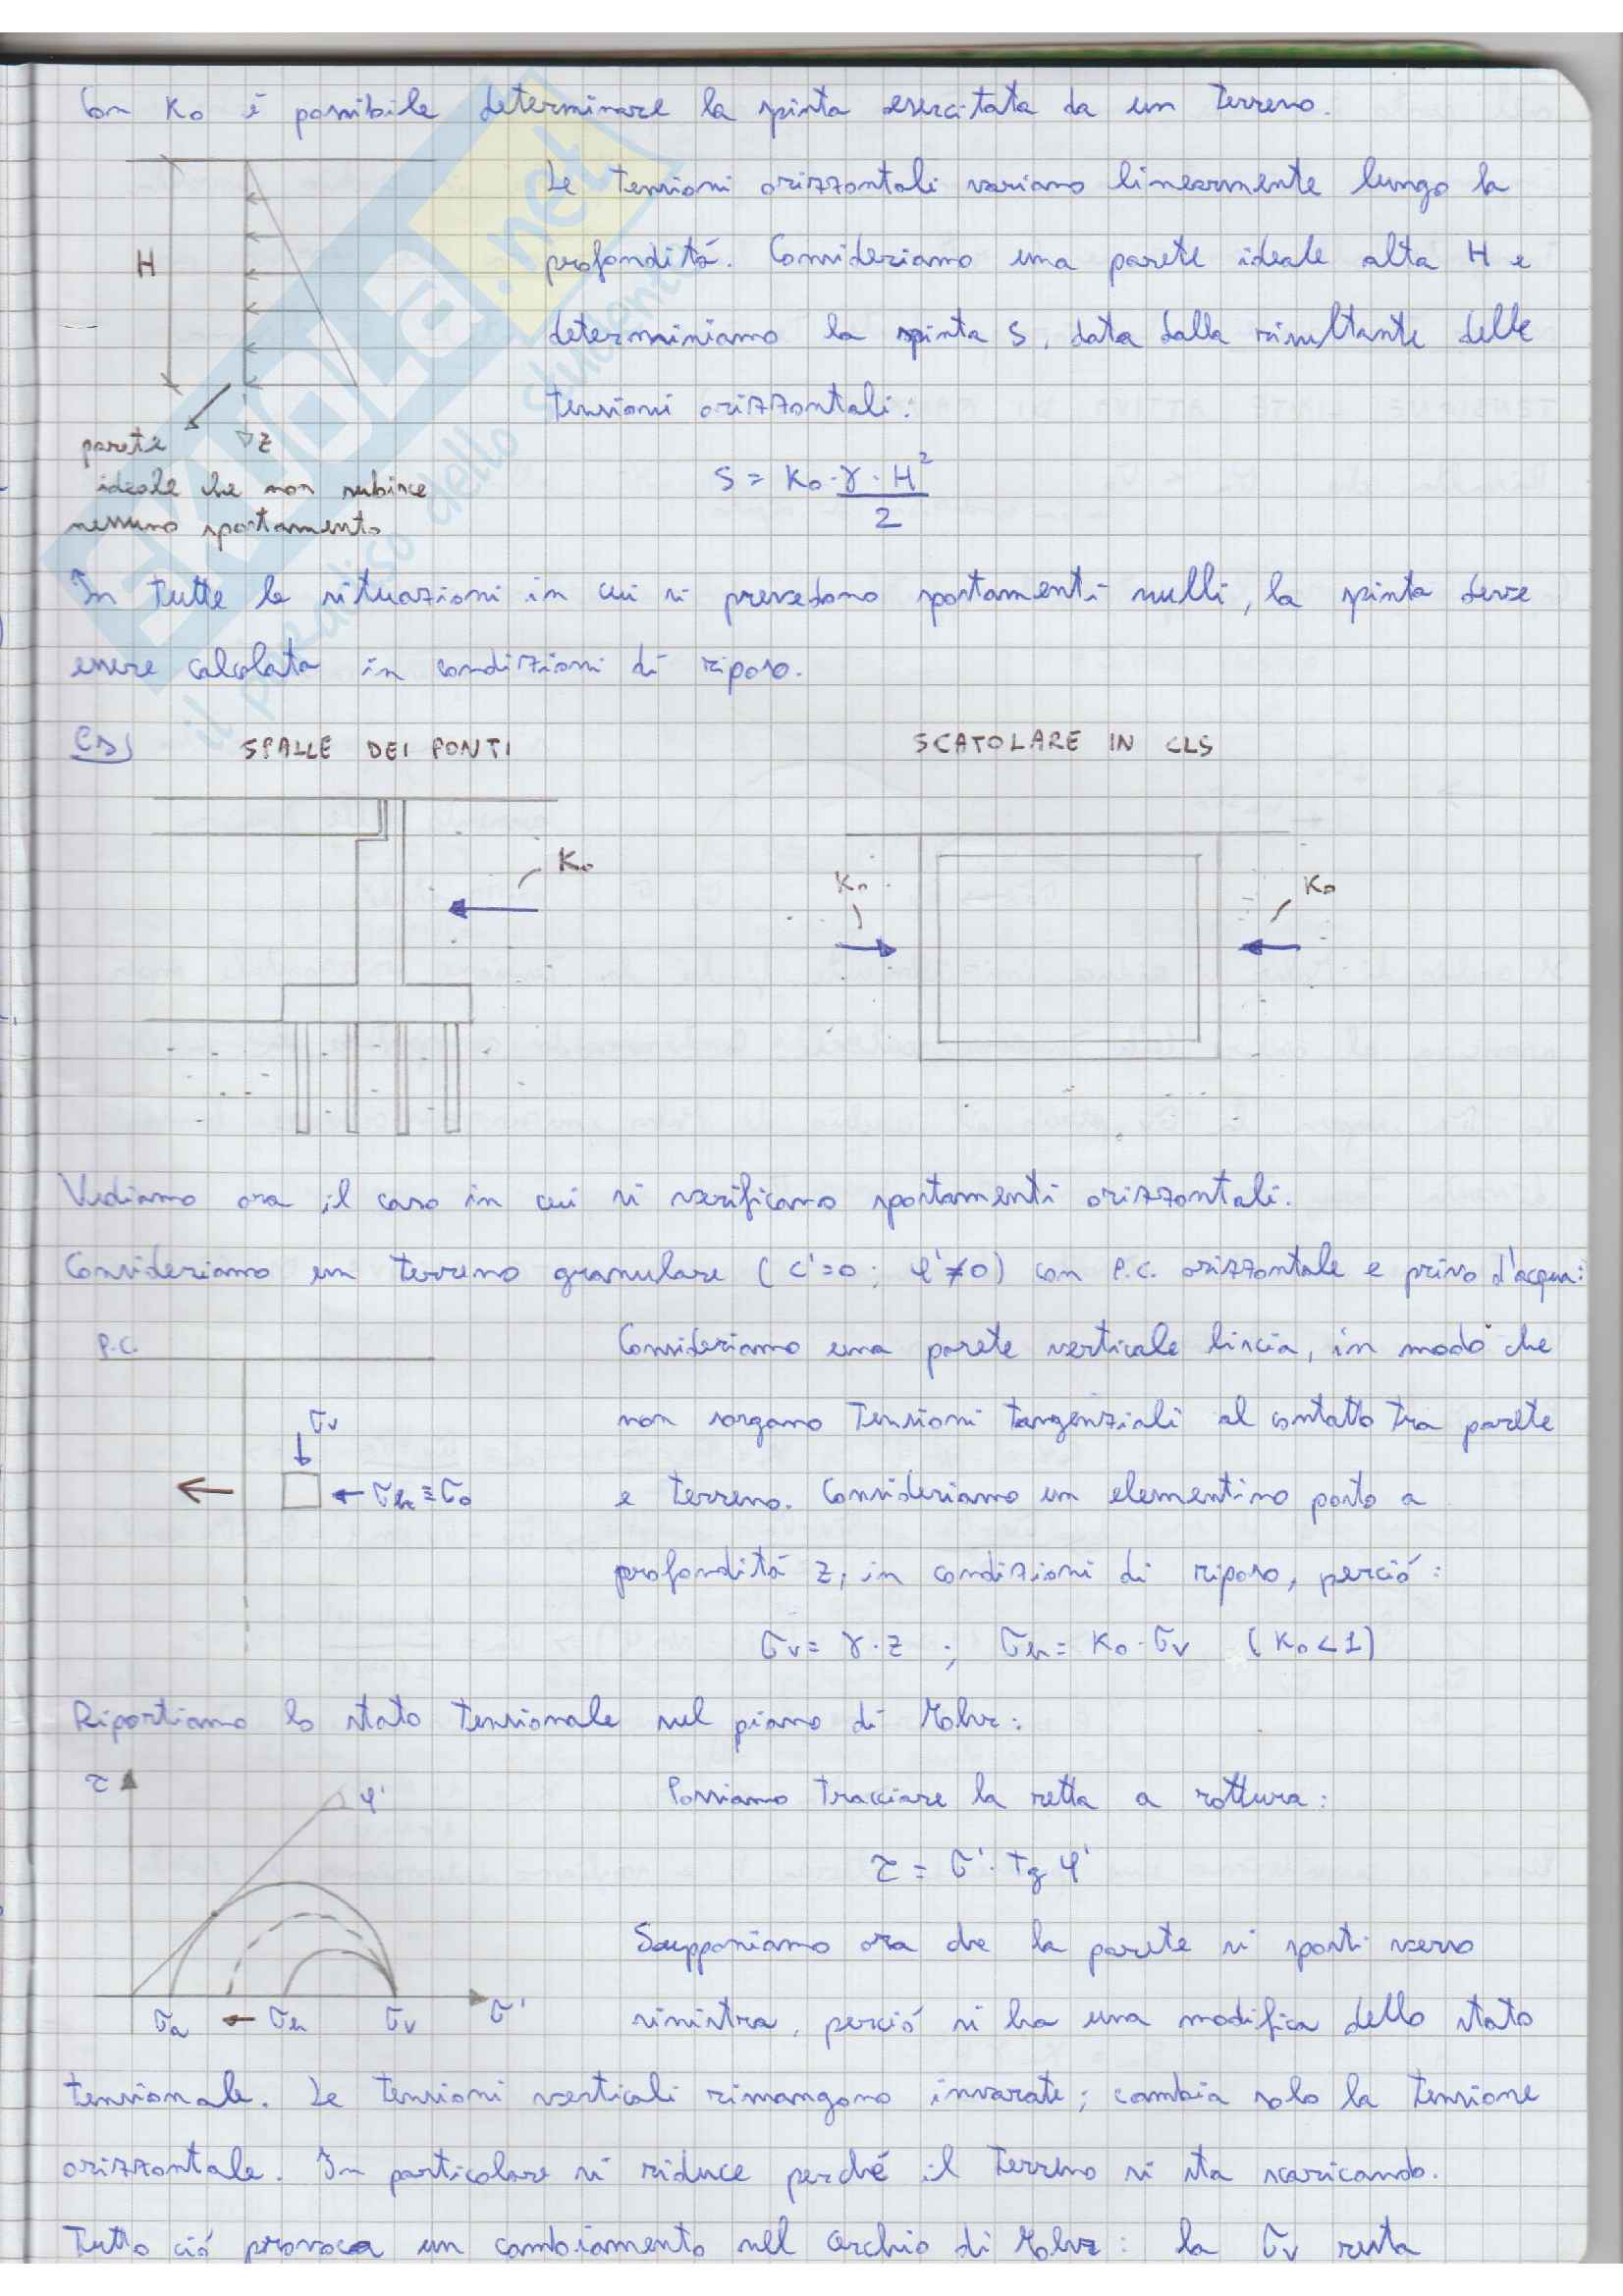 Con K₀ è possibile determinare la spinta esercitata da un terreno.
Le tensioni orizzontali variano linearmente lungo la
profonditá. Consideriamo una parete ideale alta H e
determiniamo la spinta S, data dalla risultante delle
tensioni orizzontali:
H
z
parete
ideale che non subisce
nessuno spostamento
S = K₀·γ·H²
2
In tutte le situazioni in cui si prevedono spostamenti nulli, la spinta deve
essere calcolata in condizioni di riposo.
Es)
SPALLE DEI PONTI
SCATOLARE IN CLS
K₀
K₀
K₀
Vediamo ora il caso in cui si verificano spostamenti orizzontali.
Consideriamo un terreno granulare (c'=0; φ'≠0) con P.C. orizzontale e privo d'acqua:
P.C.
Consideriamo una parete verticale liscia, in modo che
non sorgano tensioni tangenziali al contatto tra parete
σv
σh ≡ σ₀
e terreno. Consideriamo un elementino posto a
profonditá z, in condizioni di riposo, perció:
σv = γ·z ; σh = K₀·σv (K₀<1)
Riportiamo lo stato tensionale nel piano di Mohr:
τ
φ'
Possiamo tracciare la retta a rottura:
τ = σ'·tg φ'
Supponiamo ora che la parete si sposti verso
σa ← σh σv σ'
sinistra, perció si ha una modifica dello stato
tensionale. Le tensioni verticali rimangono invarate; cambia solo la tensione
orizzontale. In particolare si riduce perché il terreno si sta scaricando.
Tutto ció provoca un cambiamento nel cerchio di Mohr: la σv resta
SKUOLA.net
il paradiso dello studente